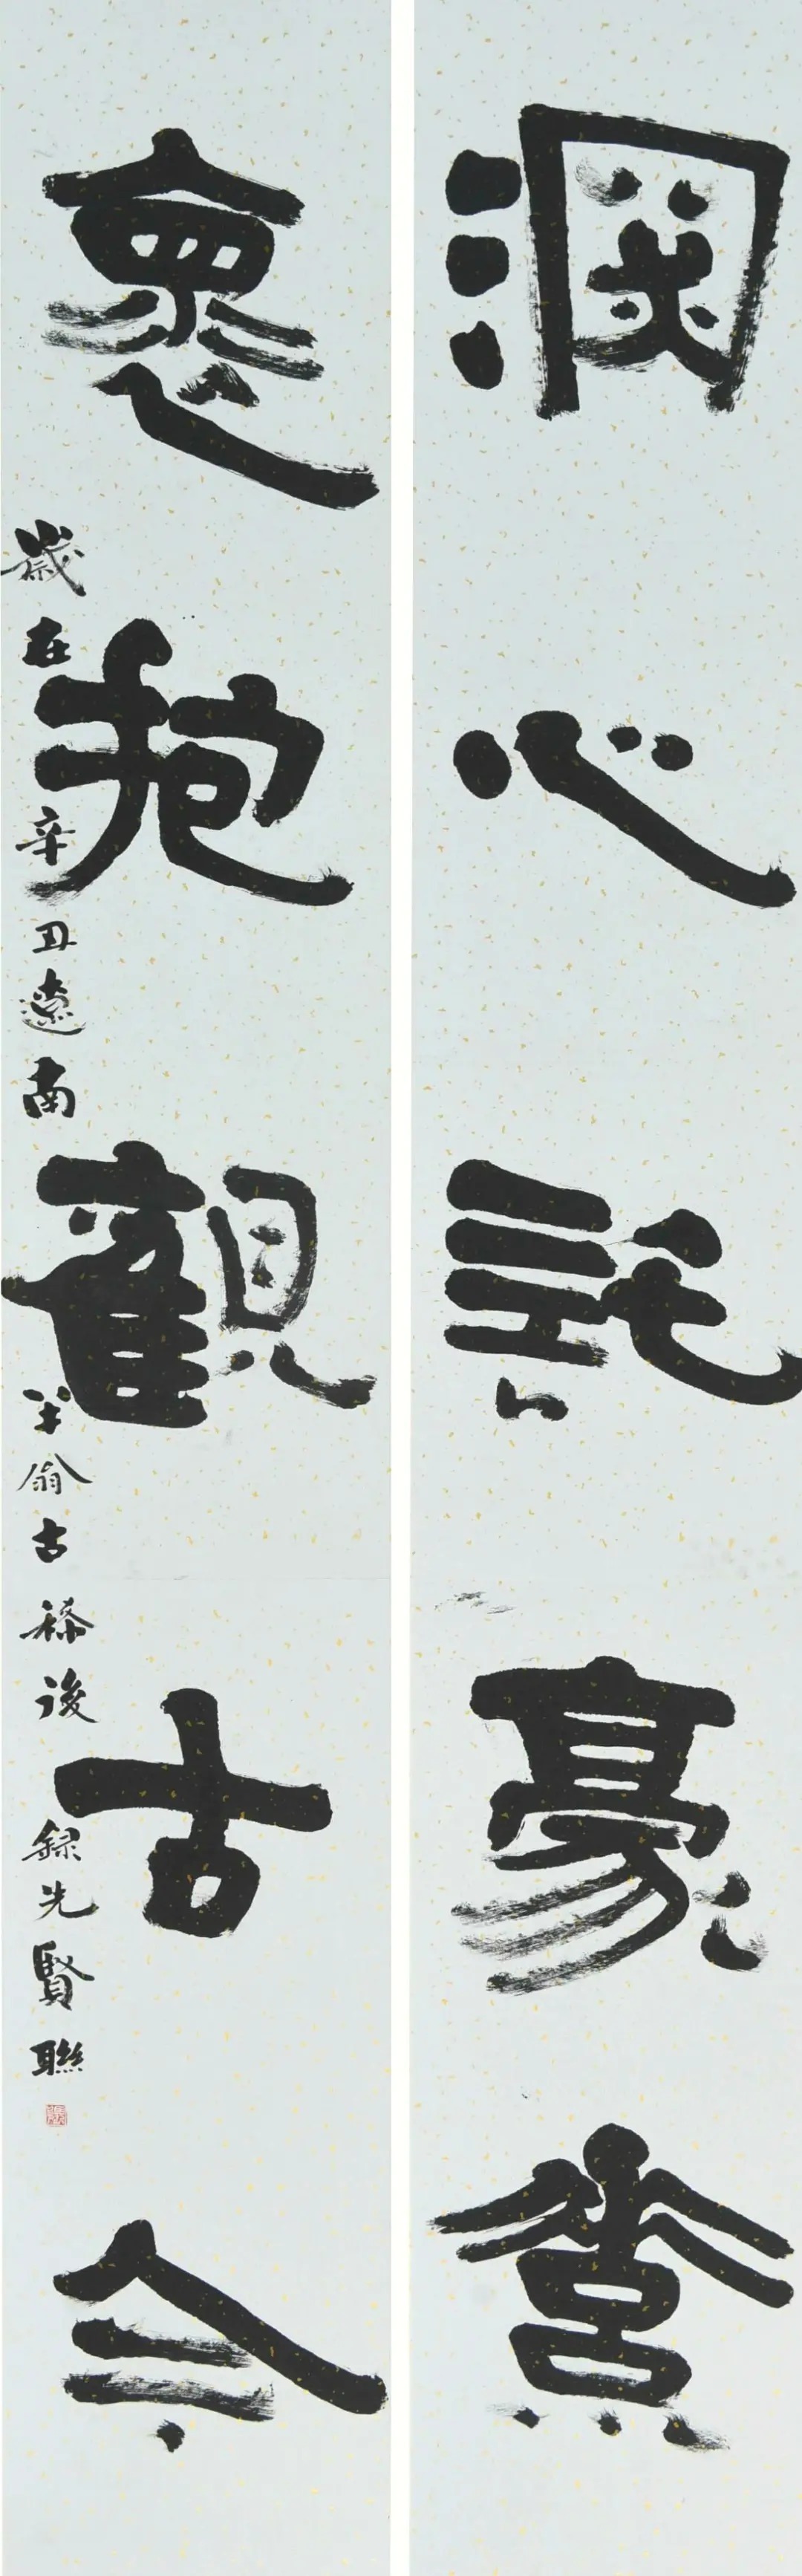 深心託豪素
懷抱觀古今
歲在辛丑遼南半翁古稀後録先賢聯